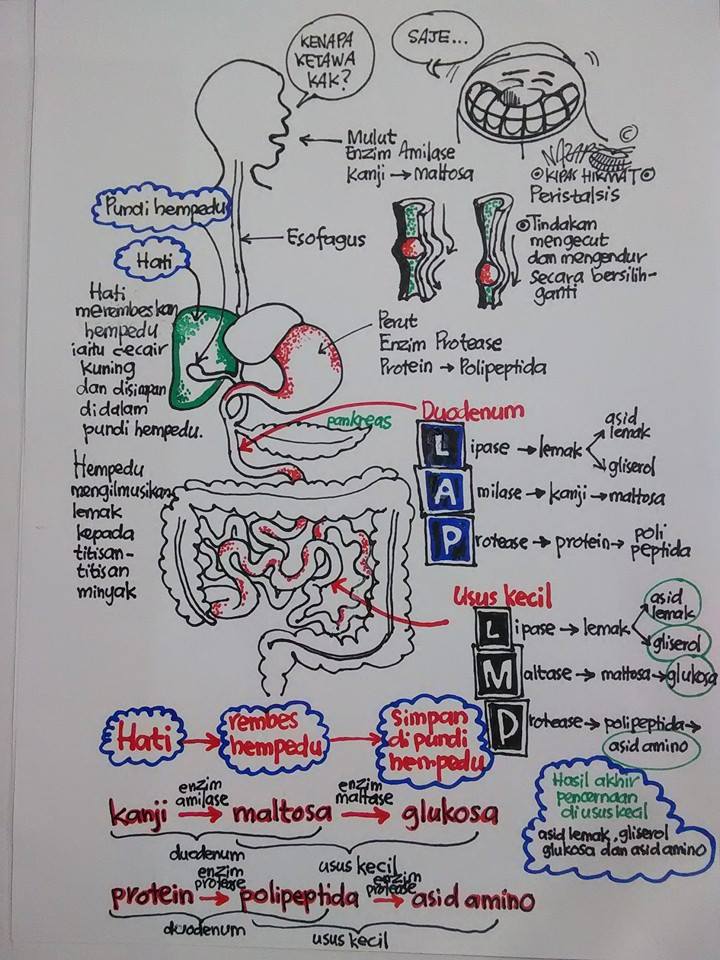 KENAPA
KETAWA
KAK?
SAJE...
©
KIPAS HIKMAT
Mulut
Enzim Amilase
Kanji → Maltosa
Peristalsis
Tindakan
mengecut
dan mengendur
secara bersilih-
ganti
Pundi hempedu
Esofagus
Hati
Hati
merembeskan
hempedu
iaitu cecair
kuning
dan disimpan
didalam
pundi hempedu.
Perut
Enzim Protease
Protein → Polipeptida
Hempedu
mengilmusikan
lemak
kepada
titisan-
titisan
minyak
pankreas
Duodenum
Lipase → lemak
asid
lemak
gliserol
Amilase → kanji → maltosa
Protease → protein → poli
peptida
Usus kecil
Lipase → lemak
asid
lemak
gliserol
Maltase → maltosa → glukosa
Protease → polipeptida →
asid amino
Hati → rembes
hempedu → simpan
di pundi
hempedu
Hasil akhir
pencernaan
di usus kecil
asid lemak, gliserol
glukosa dan asid amino
enzim
amilase
enzim
maltase
kanji → maltosa → glukosa
duodenum
usus kecil
enzim
protease
enzim
protease
protein → polipeptida → asid amino
duodenum
usus kecil